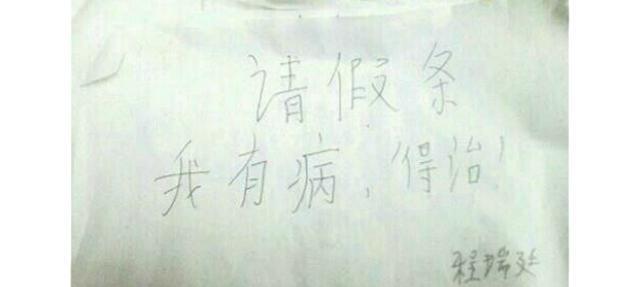 请假条
我有病，得治！
程瑞廷